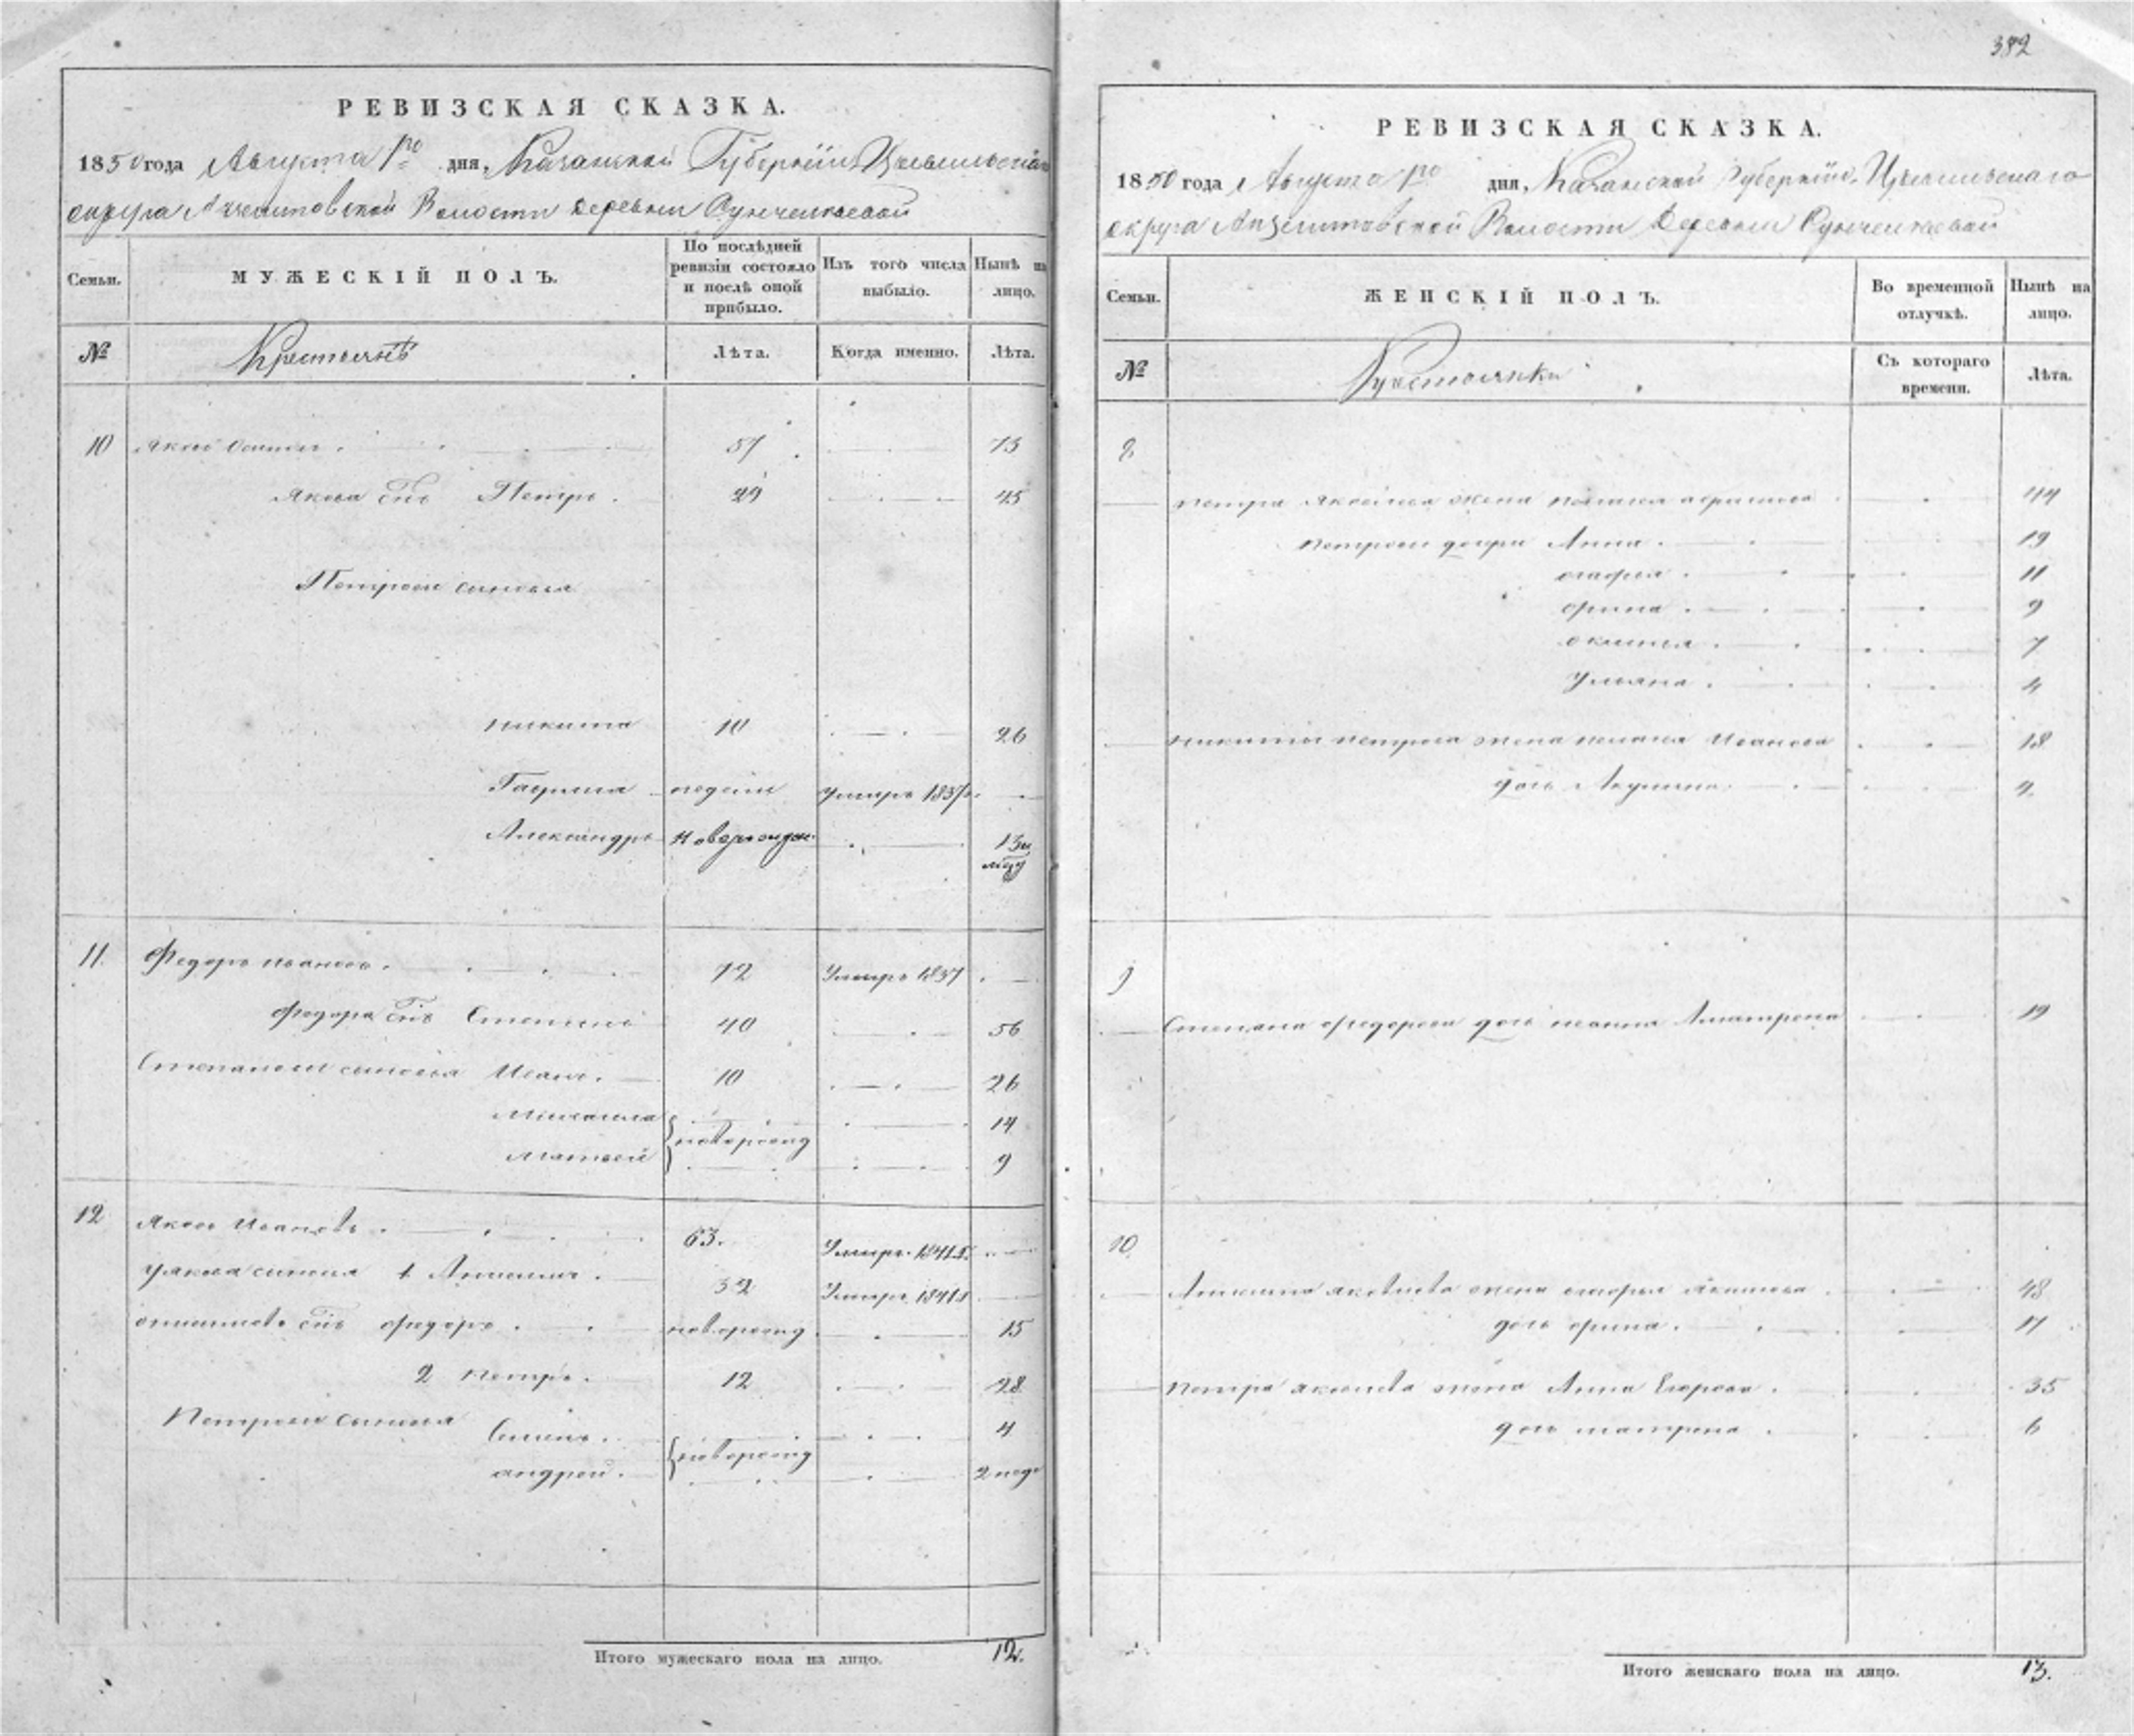 РЕВИЗСКАЯ СКАЗКА.
1850 года Августа 1го дня, Казанской Губернiи Цывильскаго
округа Волости деревни
Семьи.
МУЖЕСКІЙ ПОЛЪ.
По послѣдней ревизіи состояло и послѣ оной прибыло.
Изъ того числа выбыло.
Нынѣ на лицо.
№
Крестьянъ
Лѣта.
Когда именно.
Лѣта.
10 Яковъ Осиповъ 57 73
Якова снъ Петръ 29 45
Петровы сыновья
никита 10 26
Гаврила недели умиръ 1837
Александръ новорожден 13
11. Федоръ ивановъ 72 Умиръ 1837
федора снъ Степанъ 40 56
Степановы сыновья Иванъ 10 26
Михаила 14
новорожд
матвей 9
12 Яковъ Ивановъ 63. Умиръ 1841
Якова сыновья 1 32 Умиръ 1841
снъ федоръ новорожд 15
2 петръ 12 28
Петровы сыновья Семенъ 4
новорожд
андрей 2 неде
Итого мужескаго пола на лицо. 12.
382
РЕВИЗСКАЯ СКАЗКА.
1850 года Августа 1го дня, Казанской Губернiи Цывильскаго
округа Волости Деревни
Семьи.
ЖЕНСКІЙ ПОЛЪ.
Во временной отлучкѣ.
Нынѣ на лицо.
№
Крестьянки
Съ котораго времени.
Лѣта.
8
петра яковлева жена 44
петровы дочри Анна 19
огафья 11
орина 9
7
Ульяна 4
никиты петрова жена Иванова 18
дочь Акулина
9
Степана федорова дочь 19
10
яковлева жена 48
дочь орина 17
петра яковлева жена Анна Егорова 35
дочь матрена 6
Итого женскаго пола на лицо. 13.